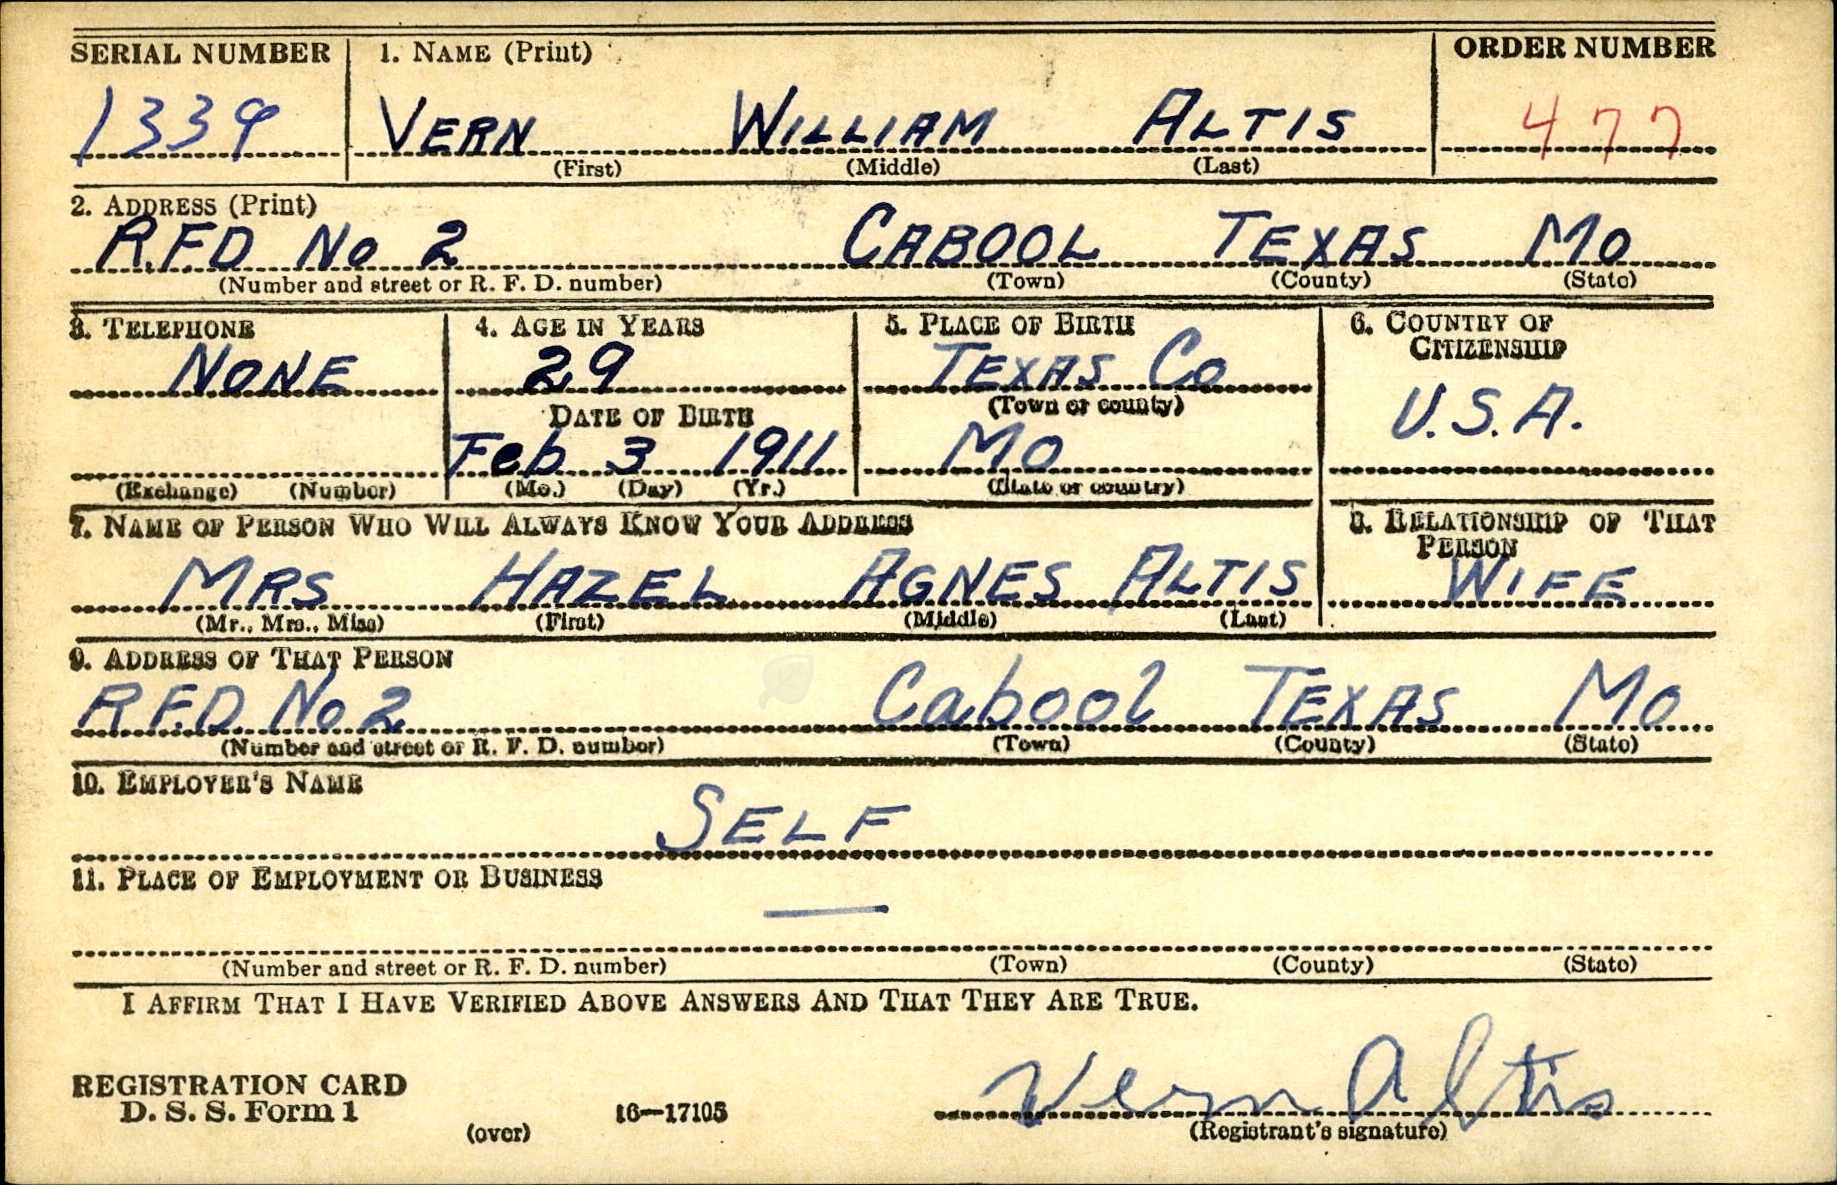 SERIAL NUMBER 1. NAME (Print) ORDER NUMBER
1339 VERN WILLIAM ALTIS 477
(First) (Middle) (Last)
2. ADDRESS (Print)
R.F.D No 2 CABOOL TEXAS MO
(Number and street or R. F. D. number) (Town) (County) (State)
3. TELEPHONE 4. AGE IN YEARS 5. PLACE OF BIRTH 6. COUNTRY OF CITIZENSHIP
NONE 29 TEXAS Co
DATE OF BIRTH (Town or county) U.S.A.
Feb 3 1911 MO
(Exchange) (Number) (Mo.) (Day) (Yr.) (State or country)
7. NAME OF PERSON WHO WILL ALWAYS KNOW YOUR ADDRESS 8. RELATIONSHIP OF THAT PERSON
MRS HAZEL AGNES ALTIS WIFE
(Mr., Mrs., Miss) (First) (Middle) (Last)
9. ADDRESS OF THAT PERSON
R.F.D. No 2 Cabool TEXAS MO
(Number and street or R. F. D. number) (Town) (County) (State)
10. EMPLOYER'S NAME
SELF
11. PLACE OF EMPLOYMENT OR BUSINESS
—
(Number and street or R. F. D. number) (Town) (County) (State)
I AFFIRM THAT I HAVE VERIFIED ABOVE ANSWERS AND THAT THEY ARE TRUE.
REGISTRATION CARD
D. S. S. Form 1 16—17105 Vern Altis
(over) (Registrant's signature)